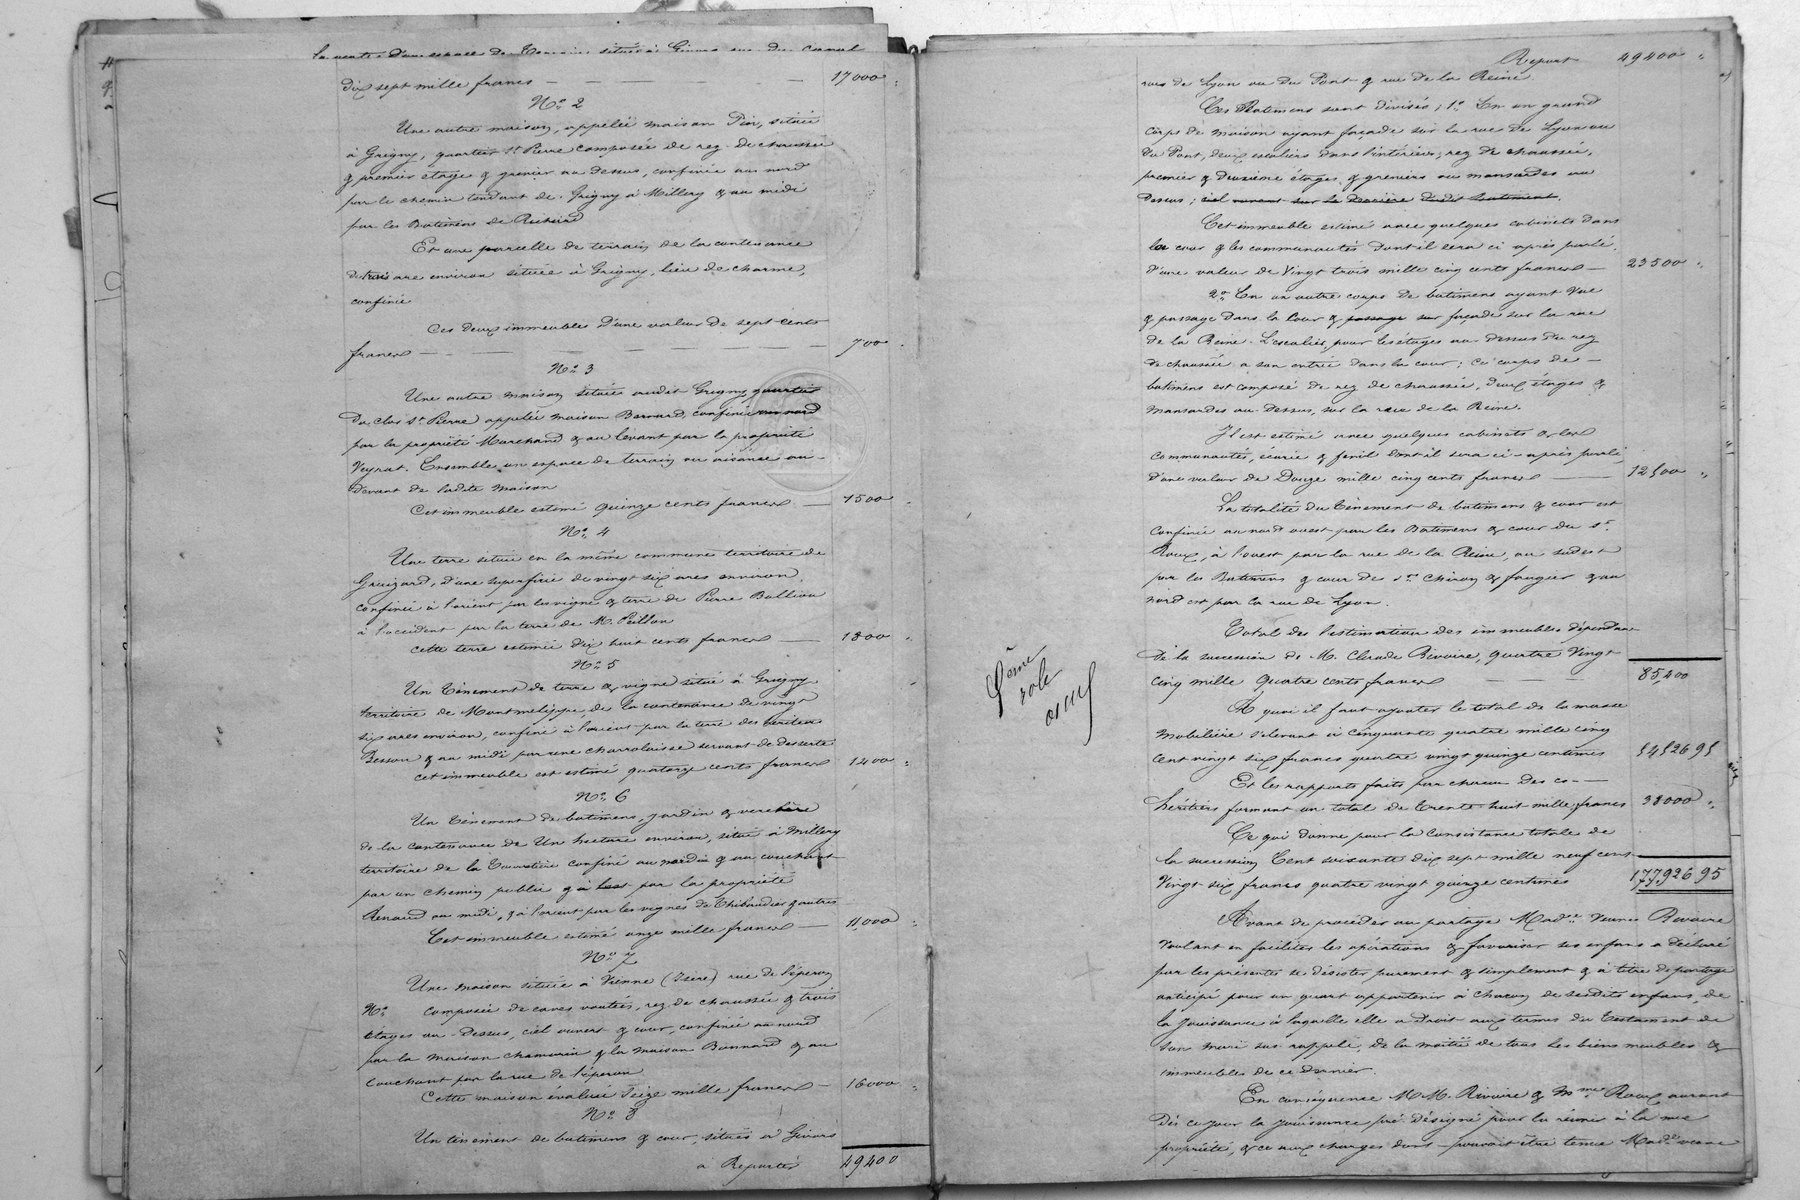 la vente d'un espace de terrain situé à Givors
dix sept mille francs — 17000
N° 2
Une autre maison, appelée maison Pior, située
à Grigny, quartier St Pierre composée de rez-de-chaussée
& premier étage & grenier au dessus, confinée au nord
par le chemin tendant de Grigny à Millery & au midi
par les Batimens de Richard
Et une parcelle de terrain de la contenance
de trois are environ située à Grigny, lieu de charme,
confinée
Ces deux immeubles d'une valeur de sept cents
francs — 700
N° 3
Une autre maison située audit Grigny quartier
du clos St Pierre appelée maison Bernard, confinée au nord
par la propriété Marchand & au levant par la propriété
Veyrat. Ensemble un espace de terrain ou aisance au-
devant de ladite maison
Cet immeuble estimé quinze cents francs — 1500
N° 4
Une terre située en la même commune territoire de
Gruizard, d'une superficie de vingt six ares environ,
confinée à l'orient par les vigne & terre de Pierre Bollion
à l'occident par la terre de M. Peillon
cette terre estimée dix huit cents francs — 1800
N° 5
Un Ténement de terre & vigne situé à Grigny
territoire de Montmelippe, de la contenance de vingt
six ares environ, confiné à l'orient par la terre des héritiers
Besson & au midi par une charrolaisse servant de desserte
cet immeuble est estimé quatorze cents francs 1400
N° 6
Un Ténement de batimens, jardin & verchère
de la contenance de Un hectare environ, situé à Millery
territoire de la confiné au & au couchant
par un chemin public & à par la propriété
Renaud au midi, & à l'orient par les vignes de Thibaudier & autres
Cet immeuble estimé onze mille francs — 11,000
N° 7
Une maison située à Vienne (Isère) rue de l'éperon
N° composée de caves voutées, rez de chaussée & trois
étages au-dessus, ciel ouvert & cour, confinée au nord
par la maison Chamarin & la maison Bonnard & au
couchant par la rue de l'éperon
Cette maison évaluée seize mille francs — 16000
N° 8
Un ténement de batimens & cour, situés à Givors
à Reporter 49400
Report 49400
rues de Lyon ou du Pont & rue de la Reine.
Ces Batimens sont divisés; 1° En un grand
corps de maison ayant façade sur la rue de Lyon ou
du Pont, deux escaliers dans l'intérieur, rez de chaussée,
premier & deuxième étages & greniers ou mansardes au
dessus; ciel ouvert sur le derrière dudit batiment.
Cet immeuble estimé avec quelques cabinets dans
la cour & les communautés dont il sera ci après parlé,
d'une valeur de Vingt trois mille cinq cents francs — 23500
2° En un autre corps de batimens ayant vue
& passage dans la cour & passage sur façade sur la rue
de la Reine. L'escalier, pour les étages au-dessus du rez
de chaussée a son entrée dans la cour; ce corps de —
batimens est composé de rez de chaussée, deux étages &
mansardes au-dessus, sur la rue de la Reine.
Il est estimé avec quelques cabinets & les
communautés, écurie & fenil dont il sera ci-après parlé,
d'une valeur de Douze mille cinq cents francs — 12500
La totalité du ténement de batimens & cour est
confinée au nord ouest par les Batimens & cour du Sr
Roux, à l'ouest par la rue de la Reine, au sud est
par les Batimens & cour de Srs Chiron & fougier & au
nord est par la rue de Lyon.
Total des l'estimation des immeubles dépendans
de la succession de M. Claude Rivoire, quatre vingt
cinq mille quatre cents francs — 85,400
A quoi il faut ajouter le total de la masse
mobilière s'élevant à cinquante quatre mille cinq
cent vingt six francs quatre vingt quinze centimes 54526 95
Et les rapports faits par chacun des co- —
héritiers formant un total de trente huit mille francs 38000
Ce qui donne pour la consistance totale de
la succession Cent soixante dix sept mille neuf cent
vingt six francs quatre vingt quinze centimes 177,926 95
5ème
role
Avant de procéder au partage Made veuve Rivoire
voulant en faciliter les opérations & favoriser ses enfans a déclaré
par les présentes se désister purement & simplement & à titre de partage
anticipé pour un quart appartenir à chacun de sesdits enfans, de
la jouissance à laquelle elle a droit aux termes du Testament de
son mari sus rappelé, de la moitié de tous les biens meubles &
immeubles de ce dernier.
En conséquence MM. Rivoire & Mme Roux auront
dès ce jour la jouissance pré désignée pour la réunir à la nue
propriété, & ce aux charges dont pourrait être tenue Made veuve